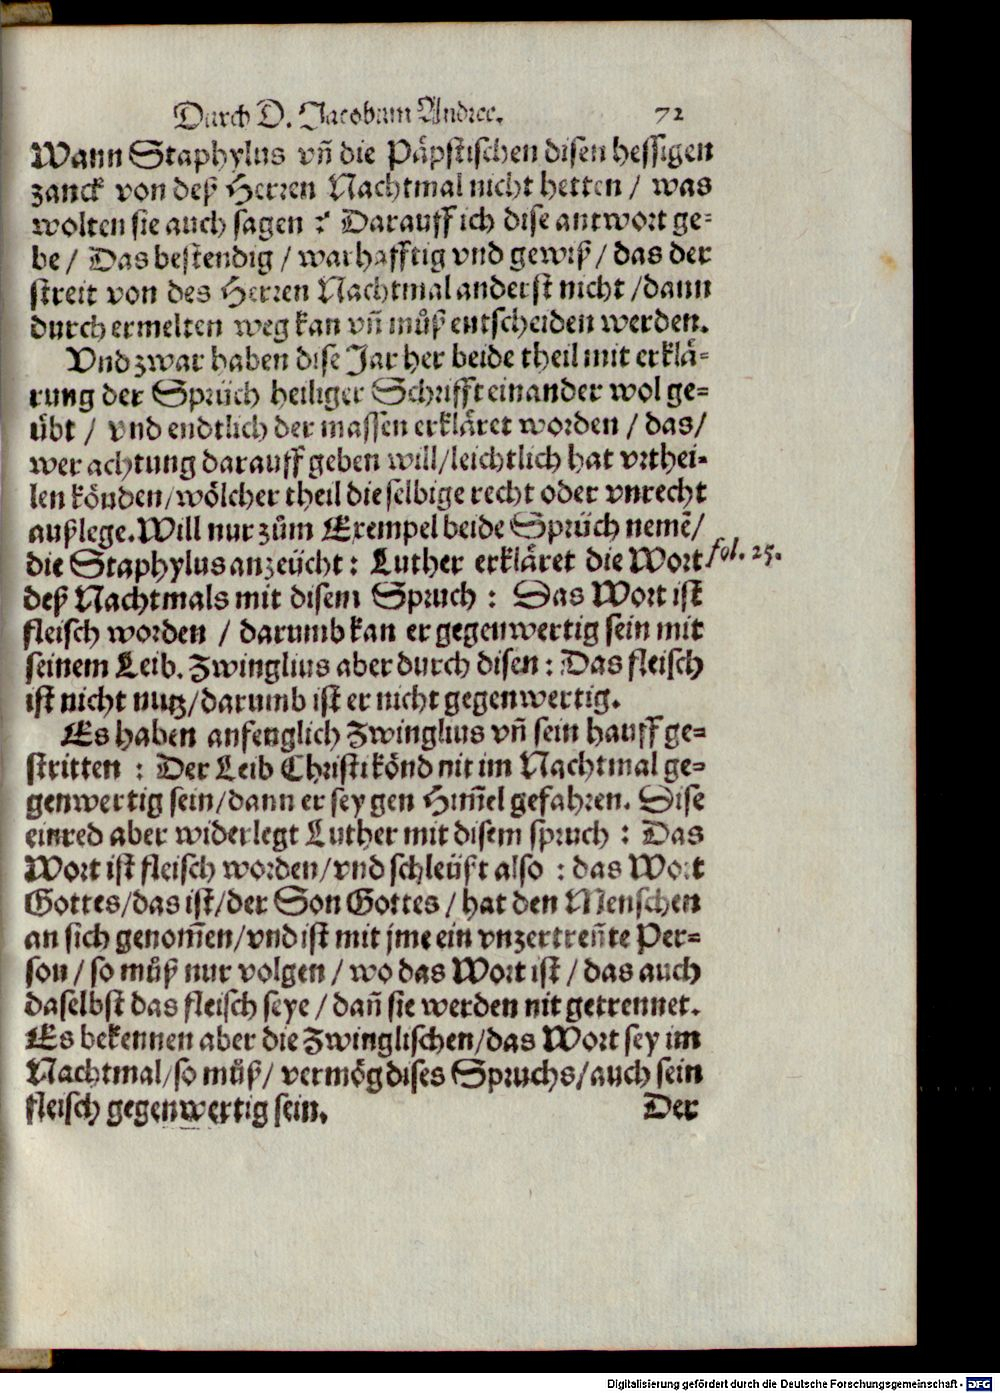 Durch D. Jacobum Andree. 72
Wann Staphylus vñ die Päpstischen disen hessigen
zanck von deß Herren Nachtmal nicht hetten / was
wolten sie auch sagen ? Darauff ich dise antwort ge-
be / Das bestendig / warhafftig vnd gewiß / das der
streit von des Herren Nachtmal anderst nicht / dann
durch ermelten weg kan vñ můß entscheiden werden.
Vnd zwar haben dise Jar her beide theil mit erklä-
rung der Sprüch heiliger Schrifft einander wol ge-
übt / vnd endtlich der massen erkläret worden / das /
wer achtung darauff geben will / leichtlich hat vrthei-
len könden / wölcher theil die selbige recht oder vnrecht
außlege. Will nur zům Exempel beide Sprüch nemẽ /
die Staphylus anzeücht : Luther erkläret die Wort fol. 25.
deß Nachtmals mit disem Spruch : Das Wort ist
fleisch worden / darumb kan er gegenwertig sein mit
seinem Leib. Zwinglius aber durch disen : Das fleisch
ist nicht nutz / darumb ist er nicht gegenwertig.
Es haben anfenglich Zwinglius vñ sein hauff ge-
stritten : Der Leib Christi könd nit im Nachtmal ge-
genwertig sein / dann er sey gen Him̃el gefahren. Dise
einred aber widerlegt Luther mit disem spruch : Das
Wort ist fleisch worden / vnd schleüßt also : das Wort
Gottes / das ist / der Son Gottes / hat den Menschen
an sich genom̃en / vnd ist mit jme ein vnzertreñte Per-
son / so můß nur volgen / wo das Wort ist / das auch
daselbst das fleisch seye / dañ sie werden nit getrennet.
Es bekennen aber die Zwinglischen / das Wort sey im
Nachtmal / so můß / vermög dises Spruchs / auch sein
fleisch gegenwertig sein. Der
Digitalisierung gefördert durch die Deutsche Forschungsgemeinschaft - DFG